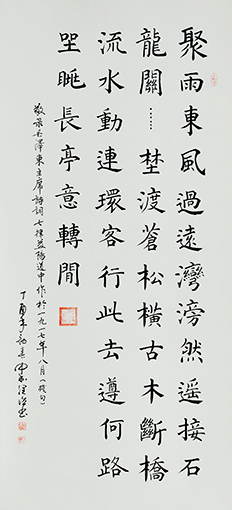 聚雨東風過遠灣滂然遥接石
龍關……埜渡蒼松橫古木斷橋
流水動連環客行此去遵何路
坐眺長亭意轉閒
敬录毛澤東主席詩詞七律益陽道中作於一九一七年八月(殘句)
丁酉年初春